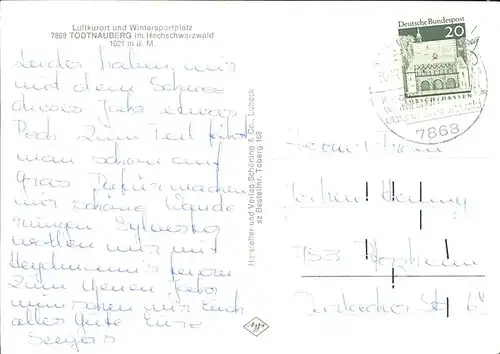 Luftkurort und Wintersportplatz
7869 TODTNAUBERG im Hochschwarzwald
1021 m ü. M.
Leider haben wir
mit dem Schnee
dieses Jahr etwas
Pech. Zum Teil fährt
man schon auf
Gras. Dafür machen
wir schöne Wande
rungen. Sylvester
wollen wir mit
feiern
Zum neuen Jahr
wünschen wir Euch
alles Gute Eure
Seegers
Hersteller und Verlag Schöning & Co., Lübeck
sz Bestellnr. Toberg 168
Deutsche Bundespost
20
LORSCH/HESSEN
7868
753 Pforzheim
Str. 6
Agfa